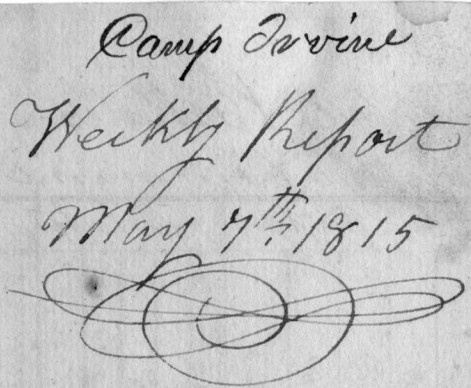 Camp Irvine
Weekly Report
May 7th 1815